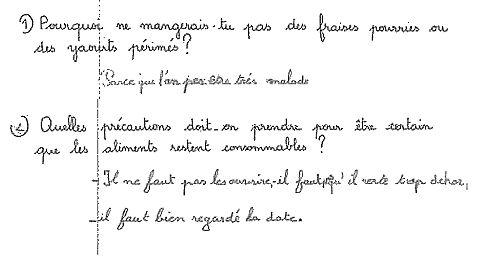 1) Pourquoi ne mangerais-tu pas des fraises pourries ou
des yaourts périmés ?
Parce que l'on pex être trés malade
2) Quelles précautions doit-on prendre pour être certain
que les aliments restent consommables ?
- Il ne faut pas les ouvrire, - il faut qu'il reste trop dehor,
- il faut bien regardé la date.